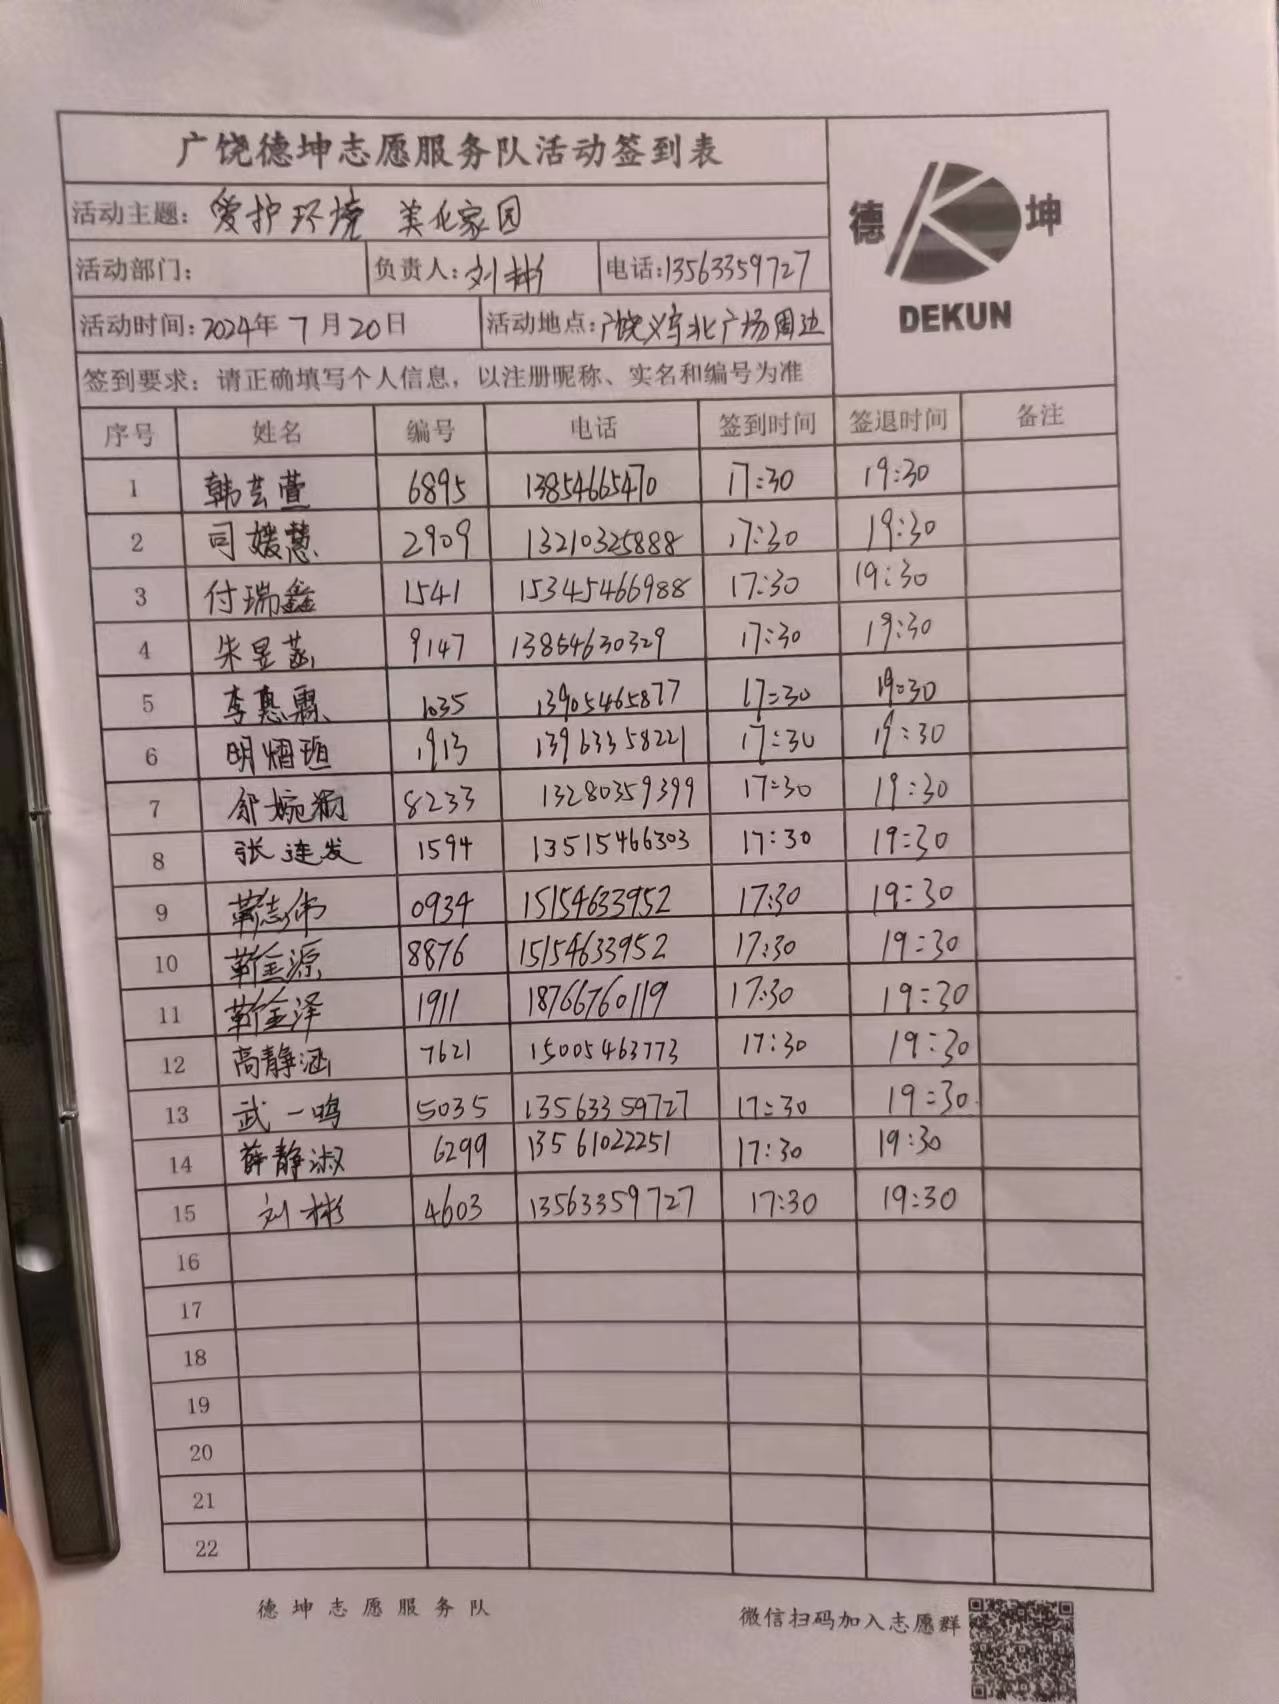 广饶德坤志愿服务队活动签到表
活动主题：爱护环境 美化家园
德 坤
DEKUN
活动部门： 负责人：刘彬 电话：13563359727
活动时间：2024年 7月20日 活动地点：广饶义乌北广场周边
签到要求：请正确填写个人信息，以注册昵称、实名和编号为准
序号 姓名 编号 电话 签到时间 签退时间 备注
1 韩芸萱 6895 13854665470 17:30 19:30
2 司媛慧 2909 13210325888 17:30 19:30
3 付瑞鑫 1541 15345466988 17:30 19:30
4 朱昱菡 9147 13854630329 17:30 19:30
5 李惠霖 1035 13905465877 17:30 19:30
6 明熠瑄 1913 13963358221 17:30 19:30
7 邹婉 8233 13280359399 17:30 19:30
8 张连发 1594 13515466303 17:30 19:30
9 靳志伟 0934 15154633952 17:30 19:30
10 靳金源 8876 15154633952 17:30 19:30
11 靳金泽 1911 18766760119 17:30 19:30
12 高静涵 7621 15005463773 17:30 19:30
13 武一鸣 5035 13563359727 17:30 19:30
14 薛静淑 6299 13561022251 17:30 19:30
15 刘彬 4603 13563359727 17:30 19:30
16
17
18
19
20
21
22
德坤志愿服务队 微信扫码加入志愿群